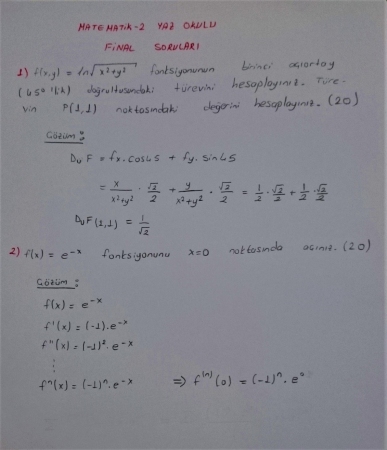 MATEMATİK-2 YAZ OKULU
FİNAL SORULARI
1) f(x,y) = ln√x²+y² fonksiyonunun birinci açıortay
(45° lik) doğrultusundaki türevini hesaplayınız. Türe-
vin P(1,1) noktasındaki değerini hesaplayınız. (20)
Çözüm :
DuF = fx.cos45 + fy.sin45
= x/x²+y² . √2/2 + y/x²+y² . √2/2 = 1/2 . √2/2 + 1/2 . √2/2
DuF(1,1) = 1/√2
2) f(x) = e^-x fonksiyonunu x=0 noktasında açınız. (20)
Çözüm :
f(x) = e^-x
f'(x) = (-1).e^-x
f''(x) = (-1)². e^-x
⋮
fⁿ(x) = (-1)ⁿ. e^-x ⇒ f⁽ⁿ⁾(0) = (-1)ⁿ. e⁰